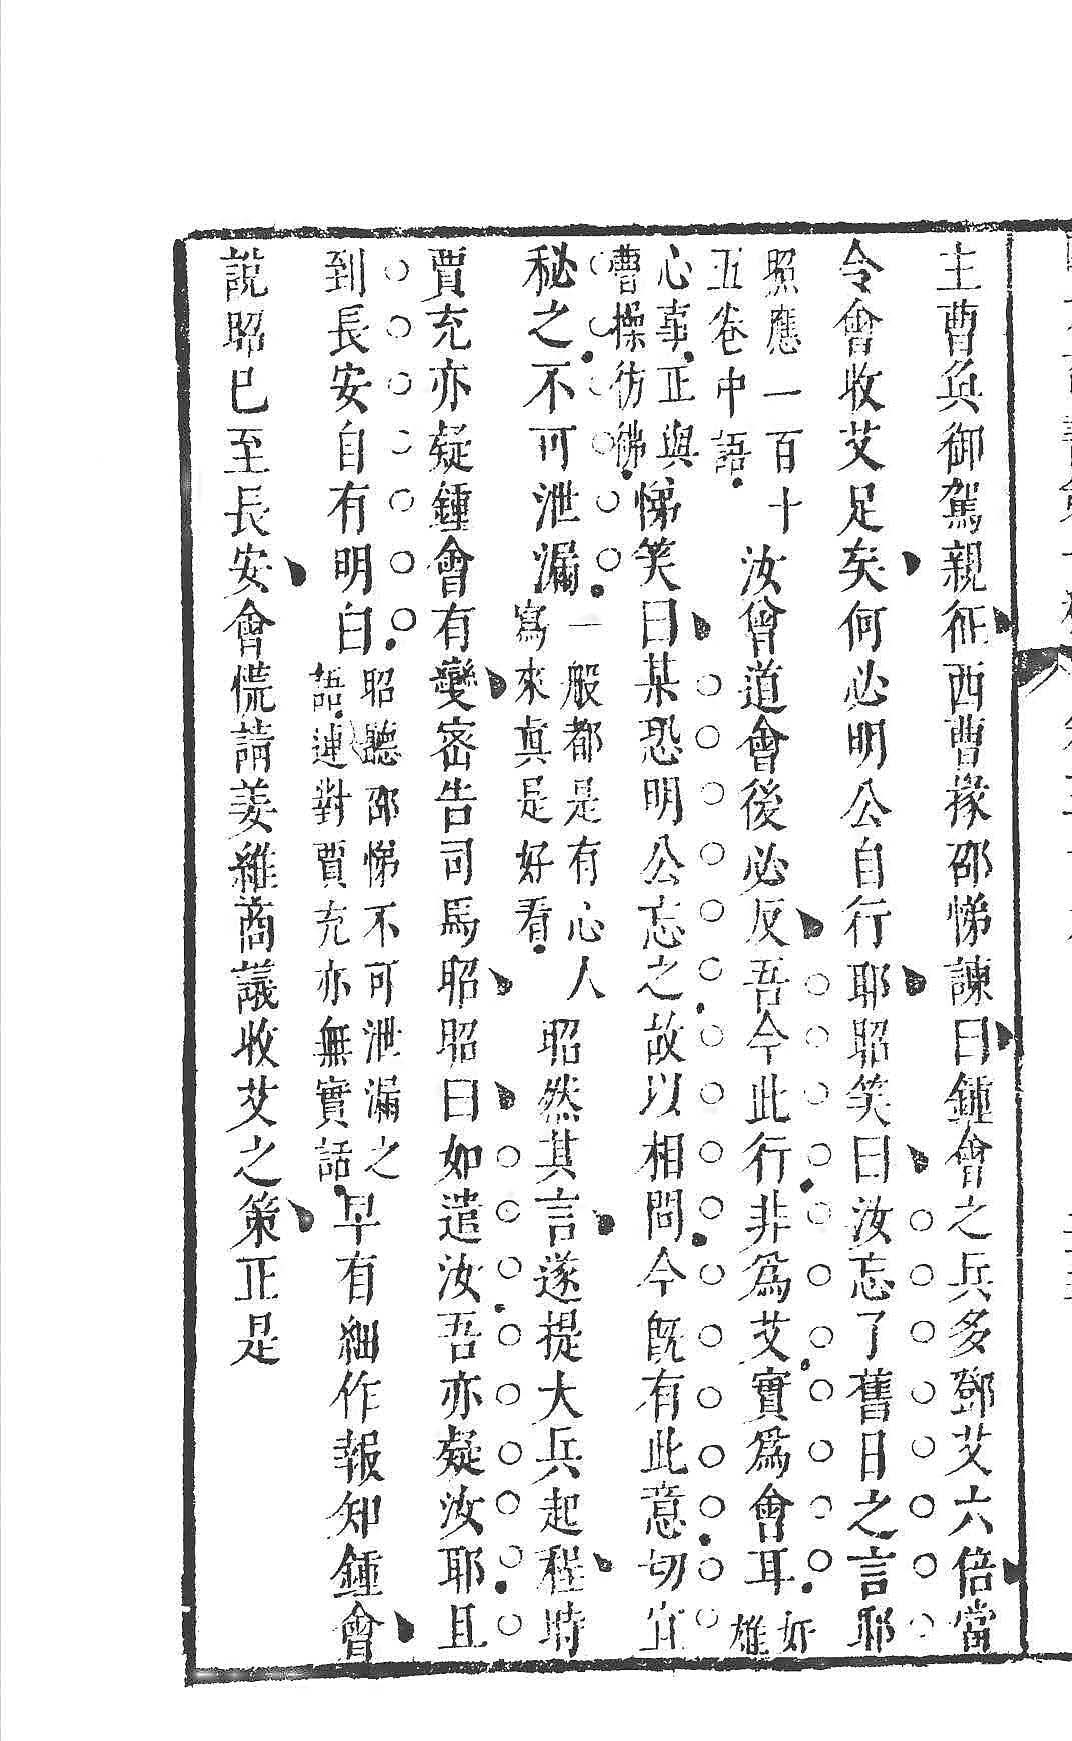 主曹奐御駕親征西曹掾邵悌諫曰鍾會之兵多鄧艾六倍當
令會收艾足矣何必明公自行耶昭笑曰汝忘了舊日之言耶
照應一百十
五卷中語汝曾道會後必反吾今此行非爲艾實爲會耳奸
雄
心事正與
曹操彷彿悌笑曰某恐明公忘之故以相問今旣有此意切宜
秘之不可泄漏一般都是有心人
寫來真是好看昭然其言遂提大兵起程時
賈充亦疑鍾會有變密告司馬昭昭曰如遣汝吾亦疑汝耶且
到長安自有明白昭聽邵悌不可泄漏之
語連對賈充亦無實話早有細作報知鍾會
說昭已至長安會慌請姜維商議收艾之策正是